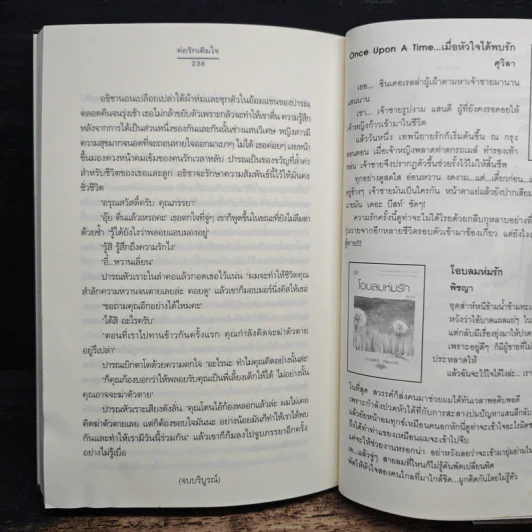 ต่อรักเติมใจ
236
อธิชานอนเปลือยเปล่าใต้ผ้าห่มและซุกตัวในอ้อมแขนของปารณ
ตลอดคืนจนรุ่งเช้า เธอไม่กล้าขยับตัวเพราะกลัวจะทำให้เขาตื่น ความรู้สึก
หลังจากการได้เป็นส่วนหนึ่งของกันและกันในช่างแสนวิเศษ หญิงสาวมี
ความสุขมากจนอดที่จะถอนหายใจออกมาเบาๆ ไม่ได้ เธอค่อยๆ เงยหน้า
ขึ้นมองดวงหน้าคมเข้มของคนรักเวลาหลับ ปารณเป็นของขวัญที่ล้ำค่า
สำหรับชีวิตของเธอและลูก อธิชาจะรักษาความสัมพันธ์นี้ไว้ให้มั่นคง
ชั่วชีวิต
"อรุณสวัสดิ์ครับ คุณภรรยา"
"อุ๊ย ตื่นแล้วเหรอคะ" เธอตกใจที่จู่ๆ เขาก็พูดขึ้นในขณะที่ยังไม่ลืมตา
ด้วยซ้ำ "รู้ได้ยังไงว่าพลอยแอบมองอยู่"
"รู้สิ รู้สึกถึงความรักไง"
"อี๋...หวานเลี่ยน"
ปารณหัวเราะในลำคอแล้วกอดเธอไว้แน่น "ผมจะทำให้ชีวิตคุณ
สำลักความหวานจนตายเลยล่ะ คอยดู" แล้วเขาก็มอบมอร์นิ่งคิสให้เธอ
"ขอถามคุณอีกอย่างได้ไหมคะ"
"ได้สิ อะไรครับ"
"ตอนที่เราไปทานข้าวกันครั้งแรก คุณกำลังคิดจะฆ่าตัวตาย
อยู่รึเปล่า"
ปารณเบิกตาโตด้วยความตกใจ "อะไรนะ ทำไมคุณคิดอย่างนั้นล่ะ"
"ก็คุณก้องบอกว่าให้พลอยรับคุณเป็นพี่เลี้ยงเด็กให้ได้ ไม่อย่างนั้น
คุณอาจจะฆ่าตัวตาย"
ปารณหัวเราะเสียงดังลั่น "คุณโดนไอ้ก้องหลอกแล้วล่ะ ผมไม่เคย
คิดฆ่าตัวตายเลย แต่ก็ต้องขอบใจมันนะ อย่างน้อยมันก็ทำให้เราได้พบ
กันและทำให้เรามีวันนี้ร่วมกัน" แล้วเขาก็ก้มลงไปจูบภรรยาอีกครั้ง
อย่างไม่รู้เบื่อ
(จบบริบูรณ์)
Once Upon A Time...เมื่อหัวใจได้พบรัก
ศุวิลา
เธอ... ซินเดอเรลล่าผู้เฝ้าตามหาเจ้าชายมานาน
แสนนาน
เขา... เจ้าชายรูปงาม แสนดี ผู้ที่ยังครองคอยให้
เจ้าหญิงก้าวเข้ามาในชีวิต
แล้ววันหนึ่ง เทพนิยายรักก็เริ่มต้นขึ้น ณ กรุง
เมื่อเจ้าหญิงพลาดท่าตกรถเมล์ ทำรองเท้า
เจ้าชายจึงปรากฏตัวขึ้นช่วยรั้งไว้ไม่ให้สิ้นชีพ
ทุกอย่างดูสดใส อ่อนหวาน งดงาม...แต่...เดี๋ยวก่อน...
เจ้าชายมันเป็นใครกัน หน้าตาแย่แล้วยังปากเสียอีก
เดอะ บีสท์ ชัดๆ!
ความรักครั้งนี้ดูท่าจะไม่ได้โรยด้วยกลีบกุหลาบอย่างที่
โอบลมห่มรัก
พิชญา
โอบลมห่มรัก
อุตส่าห์หนีข้ามน้ำข้ามทะเล
หวังว่าใช้บาดแผลแย่ๆ ใน
แต่กลับมีเรื่องยุ่งมาให้ปวด
เพราะอยู่ดีๆ ก็มีผู้ชายที่ไม่
ประหลาดให้
แล้วฉันจะไว้ใจได้ไงล่ะ...
ในที่สุด สวรรค์ก็ส่งคนมาช่วยผมได้ทันเวลาพอดิบพอดี